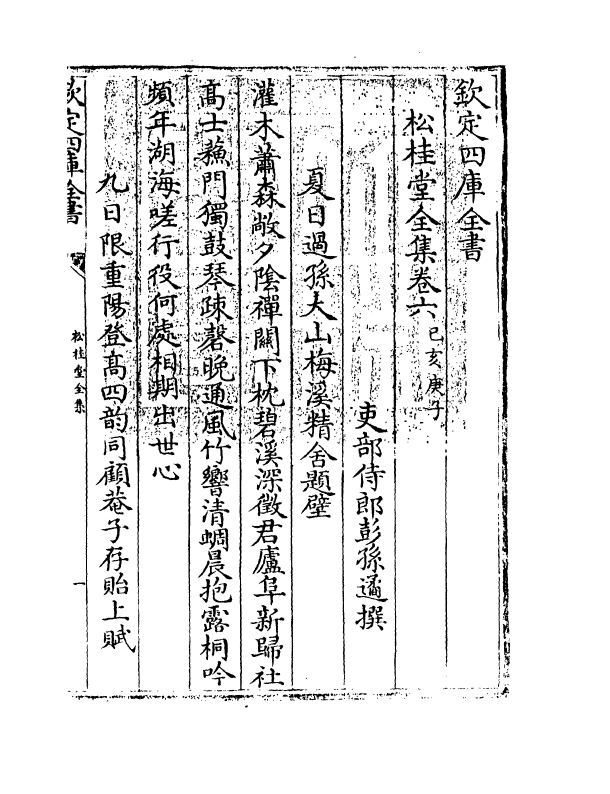 欽定四庫全書
松桂堂全集卷六 己亥庚子
吏部侍郎彭孫遹撰
夏日過孫大山梅溪精舍題壁
灌木蕭森敞夕陰禪關下枕碧溪深徵君廬阜新歸社
高士蘓門獨鼓琴疎磬晚通風竹響清蜩晨抱露桐吟
頻年湖海嗟行役何處相期出世心
九日限重陽登高四韵同顧菴子存貽上賦
欽定四庫全書
松桂堂全集
一